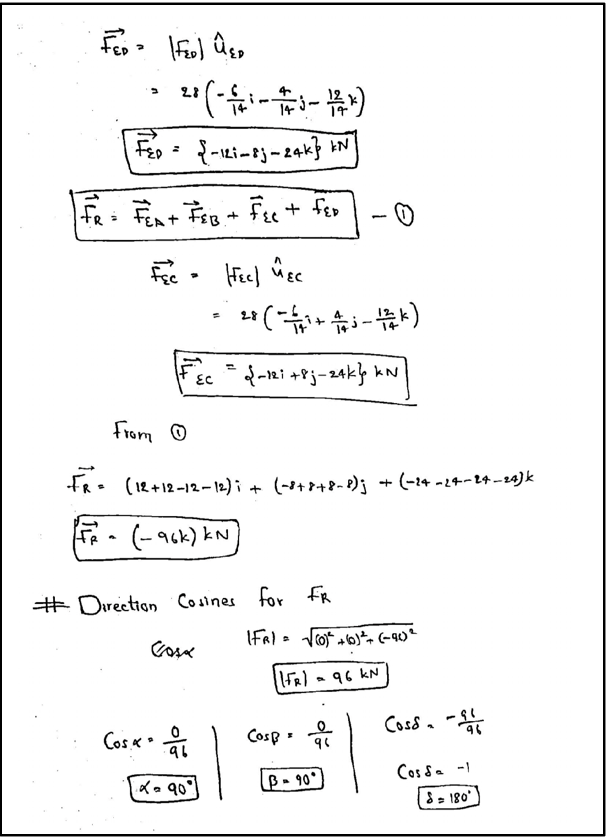 F⃗ED = |FED| ûED
= 28 (-6/14 i - 4/14 j - 12/14 k)
F⃗ED = {-12i-8j-24k} kN
F⃗R = F⃗EA + F⃗EB + F⃗EC + F⃗ED - ①
F⃗EC = |FEC| ûEC
= 28 (-6/14 i + 4/14 j - 12/14 k)
F⃗EC = {-12i+8j-24k} kN
From ①
F⃗R = (12+12-12-12)i + (-8+8+8-8)j + (-24-24-24-24)k
F⃗R = (-96k) kN
# Direction Cosines for FR
Cosα |FR| = √(0)²+(0)²+(-96)²
|FR| = 96 kN
Cosα = 0/96 Cosβ = 0/96 Cosδ = -96/96
Cosδ = -1
α = 90° β = 90° δ = 180°